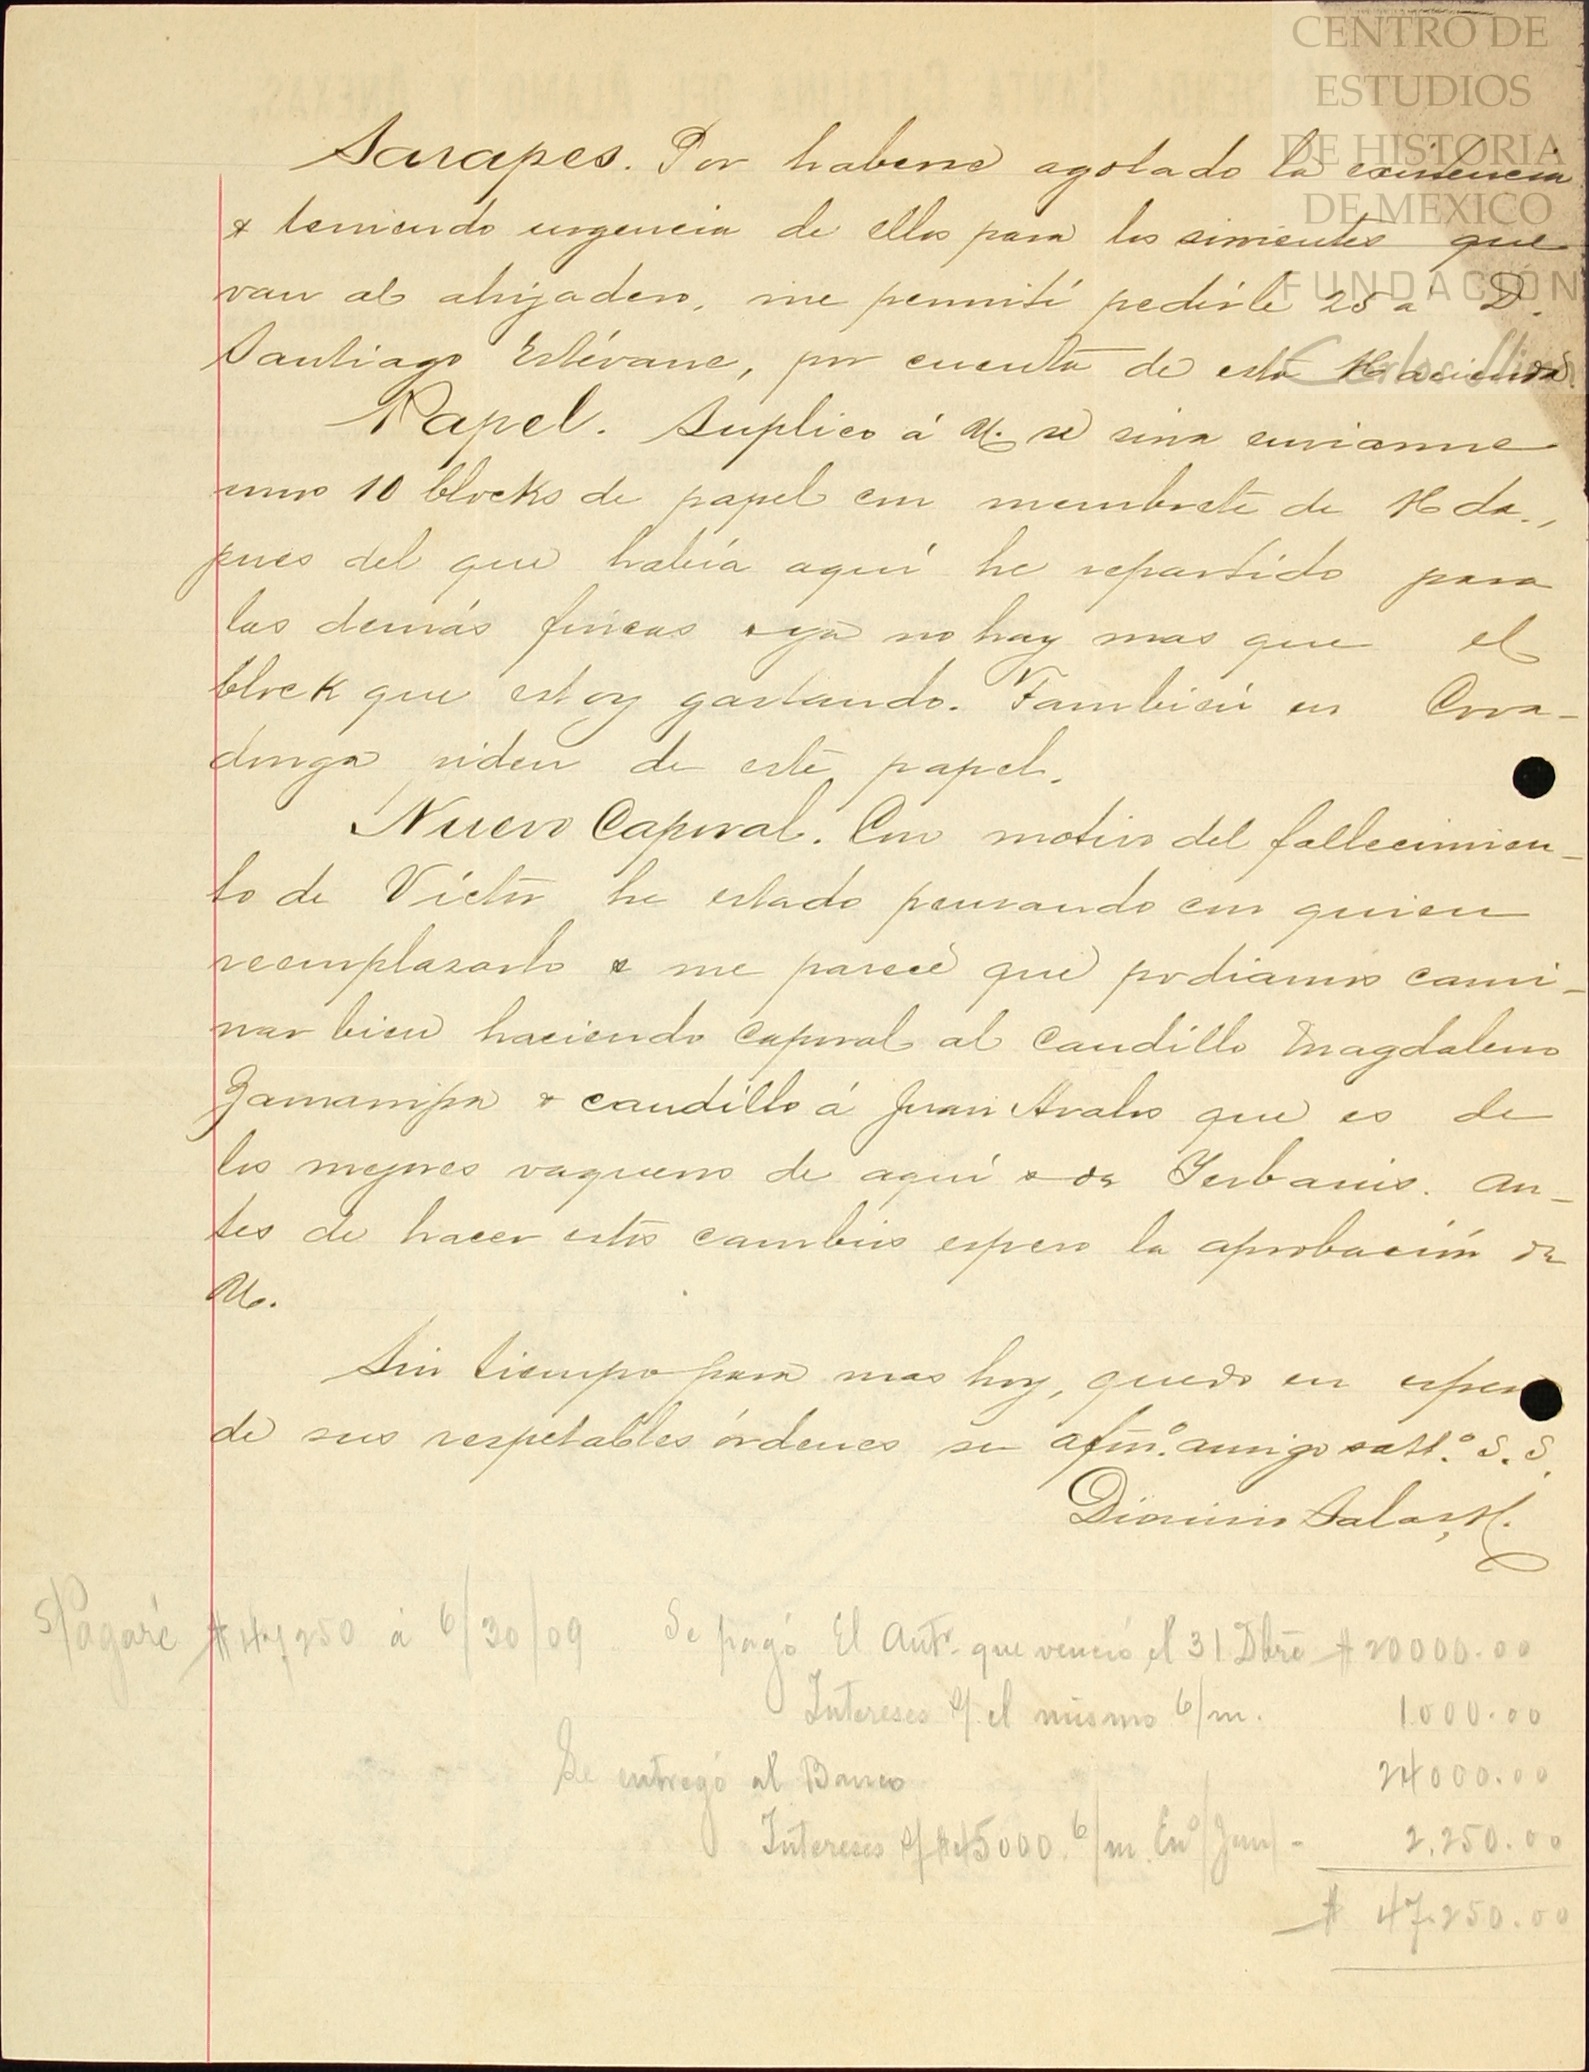 CENTRO DE
ESTUDIOS
DE HISTORIA
DE MEXICO
FUNDACIÓN
Carlos Slim
Sarapes. Por haberse agotado la existencia
& teniendo urgencia de ellos para los sirvientes que
van al ahijadero, me permití pedirle 25 á D.
Santiago Estévane, por cuenta de esta Hacienda.
Papel. Suplico á U. se sirva enviarme
unos 10 blocks de papel con membrete de Hda.,
pues del que había aquí he repartido para
las demás fincas & ya no hay mas que el
block que estoy gastando. También en Cova-
donga piden de este papel.
Nuevo Caporal. Con motivo del fallecimien-
to de Víctor he estado pensando con quien
reemplazarlo & me parece que podiamos cami-
nar bien haciendo caporal al caudillo Magdaleno
Zamarripa & caudillo á Juan Avalos que es de
los mejores vaqueros de aquí & de Yerbanis. An-
tes de hacer estos cambios espero la aprobación de
U.
Sin tiempo para mas hoy, quedo en espera
de sus respetables órdenes su afmo. amigo & atto. S. S.
Dionisio Salas, H.
S/Pagaré $47,250 á 6/30/09 Se pagó El Antr. que venció el 31 Dbre $20000.00
Intereses s/. el mismo 6/m. 1000.00
Se entregó al Banco 24000.00
Intereses s/$45000. 6/m. Eno/Jun/- 2,250.00
$ 47,250.00